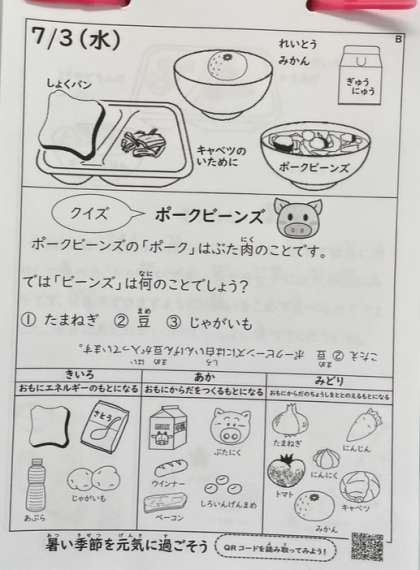 7/3(水)
B
れいとう
みかん
ぎゅう
にゅう
しょくパン
キャベツの
いために
ポークビーンズ
クイズ
ポークビーンズ
ポークビーンズの「ポーク」はぶた肉のことです。
にく
では「ビーンズ」は何のことでしょう?
なに
① たまねぎ ② 豆 ③ じゃがいも
まめ
こたえ ② 豆 ポークビーンズには白いんげん豆が入っています。
まめ しろ まめ はい
きいろ
おもにエネルギーのもとになる
さとう
じゃがいも
あぶら
あか
おもにからだをつくるもとになる
ぶたにく
ウインナー
ベーコン
しろいんげんまめ
みどり
おもにからだのちょうしをととのえるもとになる
たまねぎ
にんじん
にんにく
トマト
キャベツ
みかん
暑い季節を元気に過ごそう
あつ きせつ げんき す
QRコードを読み取ってみよう!